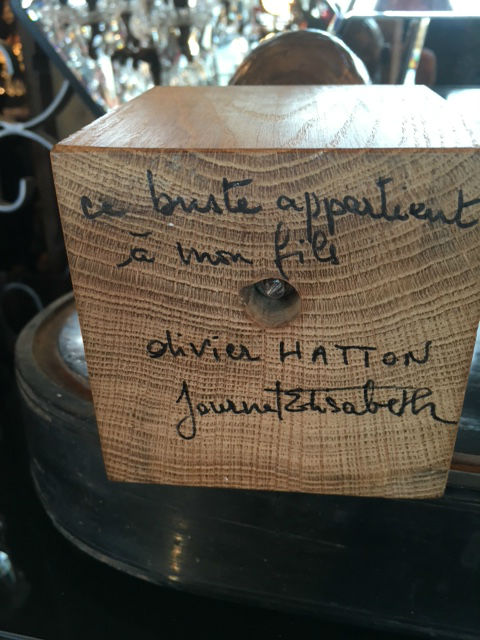 ce buste appartient
à mon fils
olivier HATTON
Journet Elisabeth